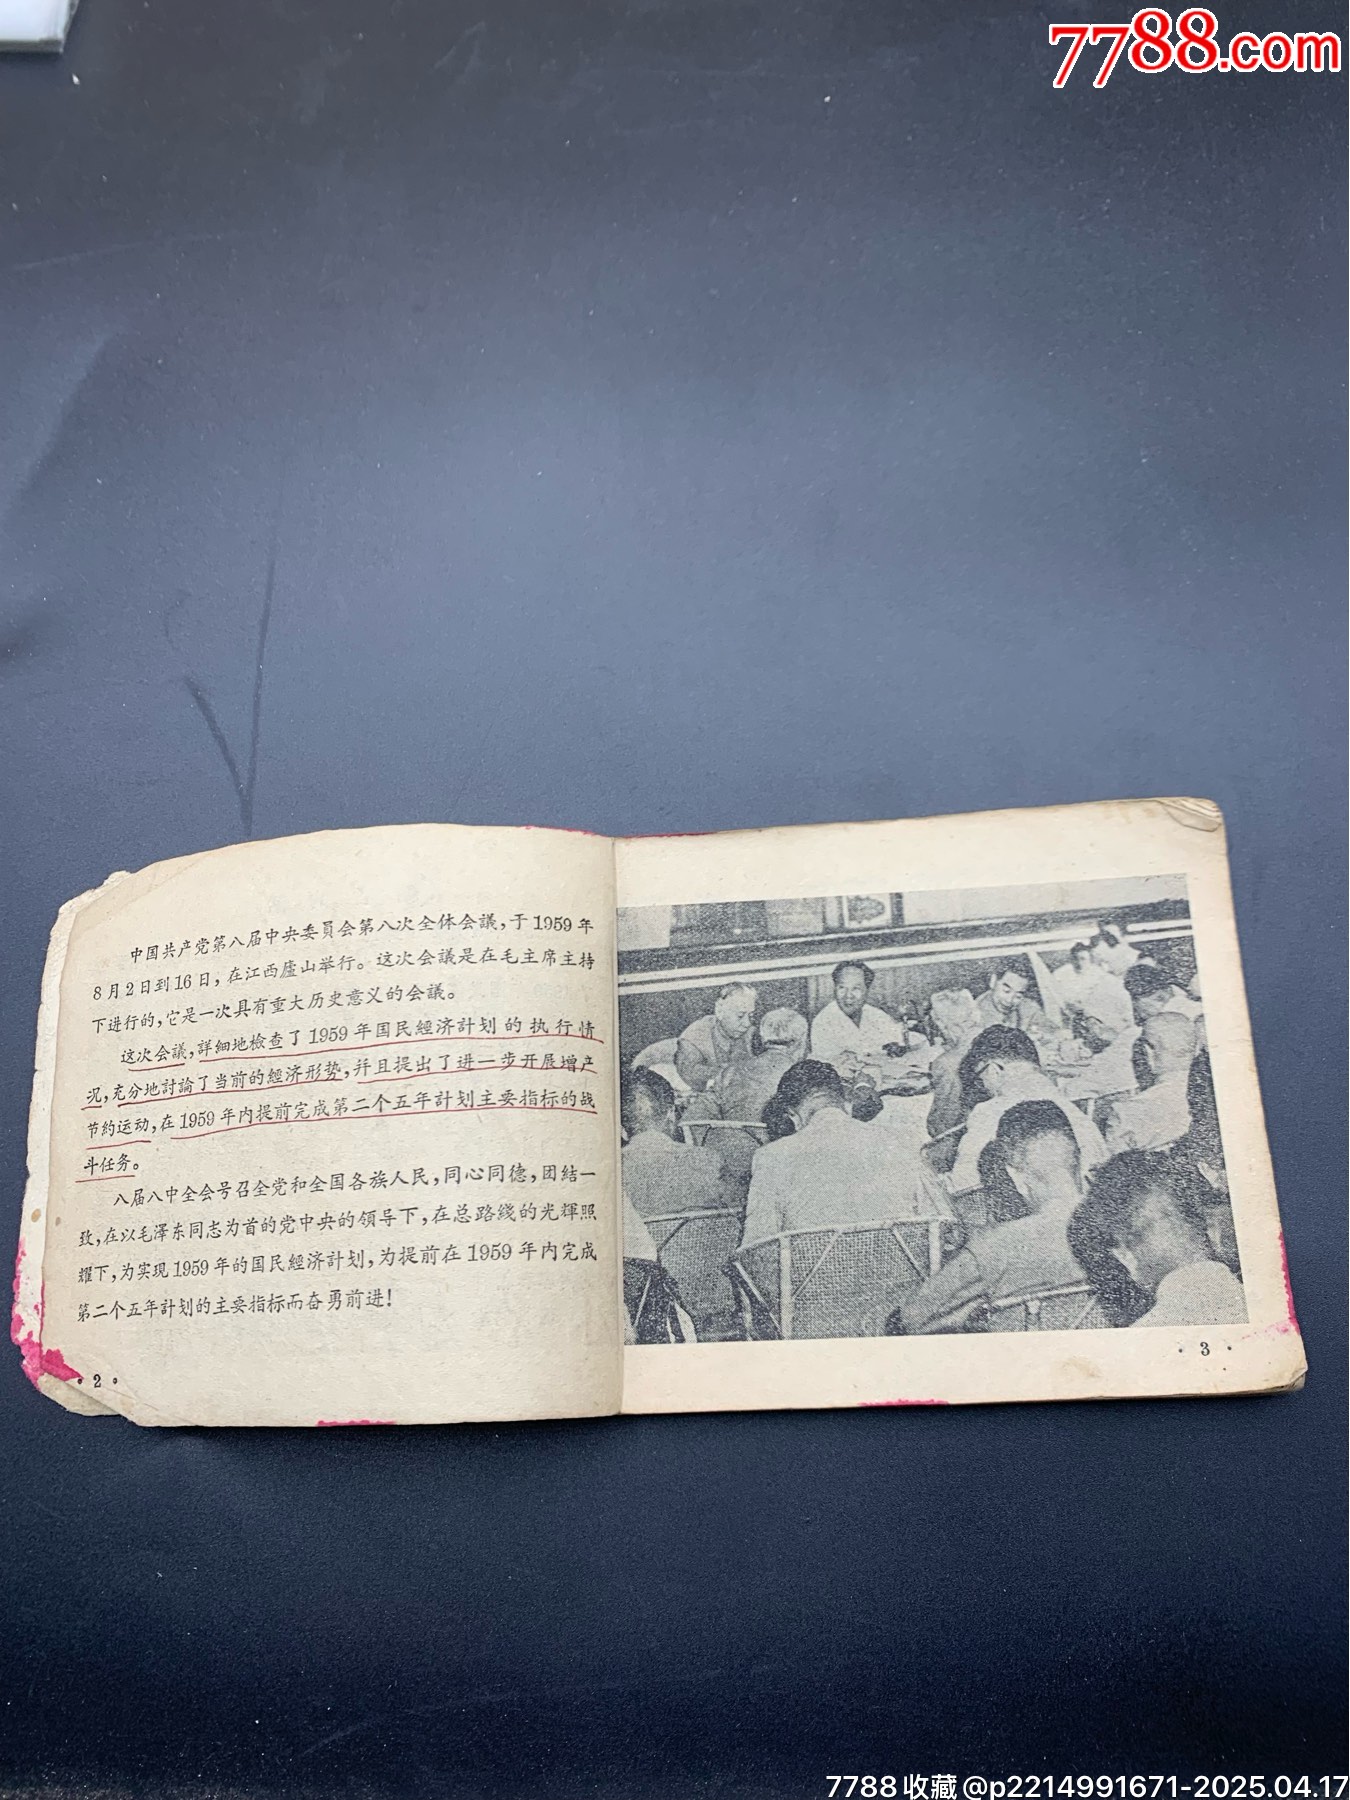 7788.com
中国共产党第八届中央委員会第八次全体会議，于1959年
8月2日到16日，在江西廬山举行。这次会議是在毛主席主持
下进行的，它是一次具有重大历史意义的会議。
这次会議，詳細地檢查了1959年国民經济計划的执行情
况，充分地討論了当前的經济形势，并且提出了进一步开展增产
节約运动，在1959年内提前完成第二个五年計划主要指标的战
斗任务。
八届八中全会号召全党和全国各族人民，同心同德，团結一
致，在以毛澤东同志为首的党中央的領导下，在总路綫的光輝照
耀下，为实现1959年的国民經济計划，为提前在1959年内完成
第二个五年計划的主要指标而奋勇前进！
·2·
·3·
7788收藏@p2214991671-2025.04.17